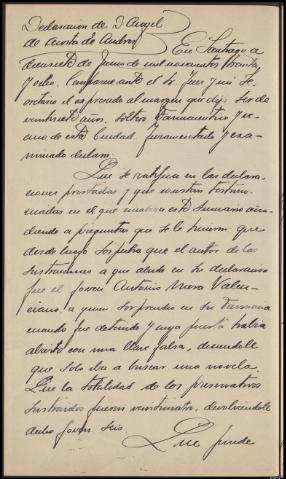 Declaracion de D. Angel
de Acosta de Andres En Santiago a
de Junio de mil novecientos treinta
y ocho. Comparece ante el Sr. Juez y mi Se-
cretario el expresado al margen que dijo ser de
veintiseis años, soltero, farmaceutico y ve-
cino de esta Ciudad. Juramentado y exa-
minado declara:
Que se ratifica en las declara-
ciones prestadas y que constan testimo-
niadas en el que encabeza este sumario aña-
diendo a preguntas que se le hacen: que
desde luego sospecha que el autor de las
sustracciones a que alude en su declaracion
fue el joven Antonio Valen-
ciano a quien sorprendio en su farmacia
cuando fue detenido y cuya puerta habia
abierto con una llave falsa, diciendole
que solo iba a buscar una novela.
Que la totalidad de los preservativos
sustraidos fueron veinticuatro, devolviendole
dicho joven seis.
Que puede